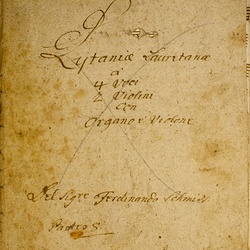 Lytaniæ Lauretanæ
à
4 Voci
2 Violini
con
Organo è Violone
Del Sigre Ferdinando Schmid